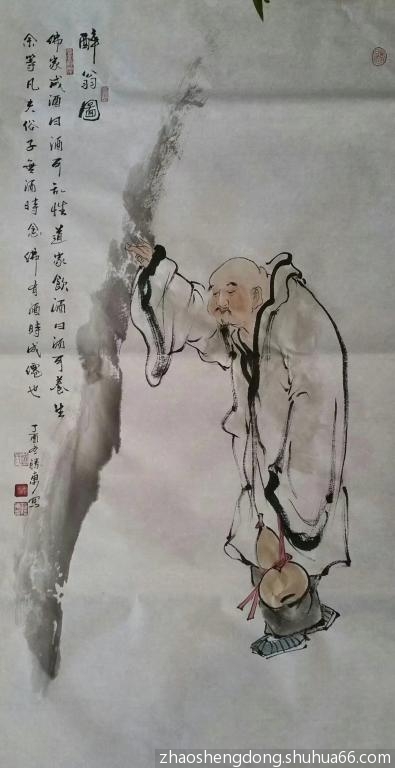 醉翁圖
佛家戒酒曰酒可乱性道家飲酒曰酒可養生
余等凡夫俗子無酒時念佛有酒時成僊也
丁酉冬勝東写
zhaoshengdong.shuhua66.com